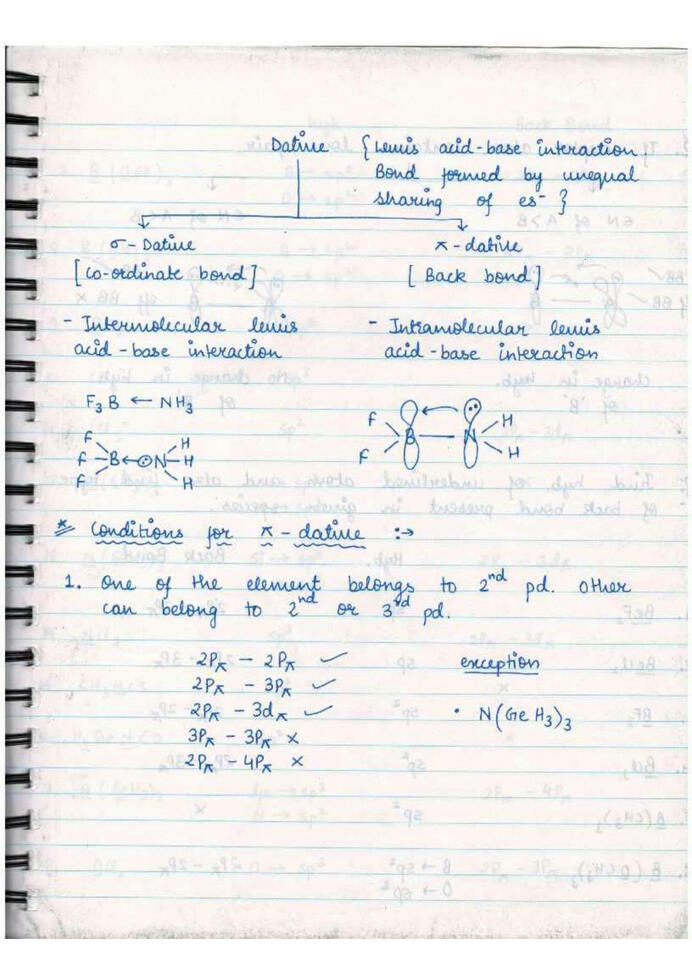 Dative { Lewis acid-base interaction
Bond formed by unequal
sharing of es⁻ }
σ - Dative
[ Co-ordinate bond ]
- Intermolecular lewis
acid-base interaction
F₃B ← NH₃
F
F
F
B ← N
H
H
H
π - dative
[ Back bond ]
- Intramolecular lewis
acid-base interaction
F
F
B — N
H
H
* Conditions for π - dative :→
1. One of the element belongs to 2nd pd. Other
can belong to 2nd or 3rd pd.
2Pπ — 2Pπ ✓
2Pπ - 3Pπ ✓
2Pπ - 3dπ ✓
3Pπ - 3Pπ ×
2Pπ - 4Pπ ×
exception
• N(GeH₃)₃